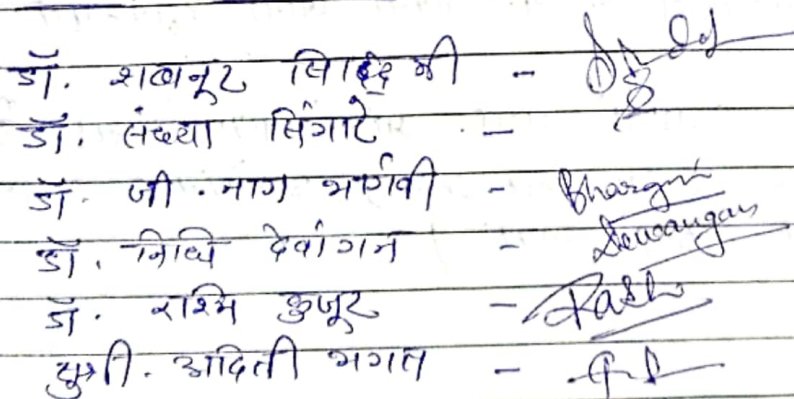 डॉ. शबानूर सिद्दिकी -
डॉ. संध्या सिंगारे -
डॉ. जी. नाग भार्गवी - Bhargavi
डॉ. निधि देवांगन - Dewangan
डॉ. रश्मि कुजूर - Rashmi
सुश्री. अदिती भगत -